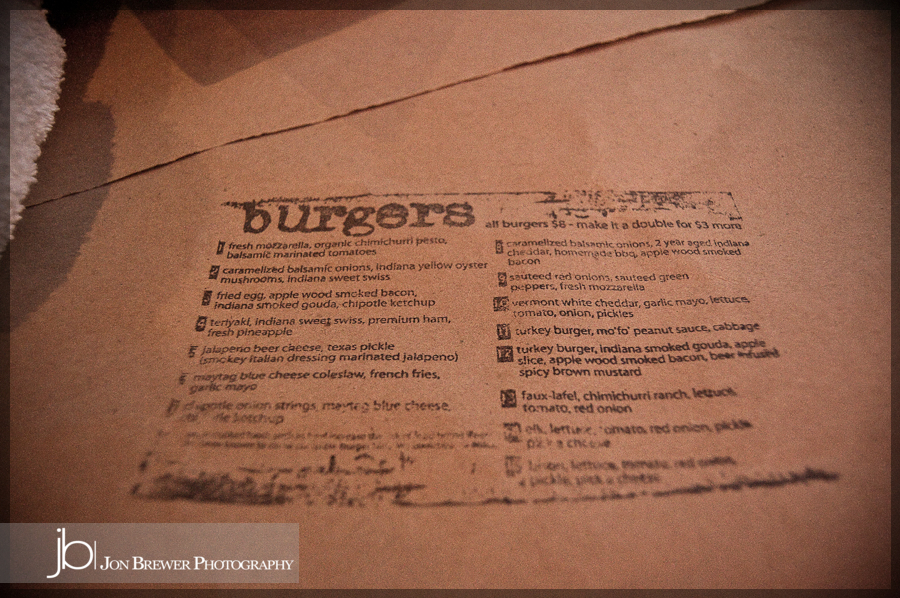 burgers
all burgers $6 - make it a double for $3 more
1 fresh mozzarella, organic chimichurri pesto,
balsamic marinated tomatoes
2 caramelized balsamic onions, indiana yellow oyster
mushrooms, indiana sweet swiss
3 fried egg, apple wood smoked bacon,
indiana smoked gouda, chipotle ketchup
4 teriyaki, indiana sweet swiss, premium ham,
fresh pineapple
5 jalapeno beer cheese, texas pickle
(smokey italian dressing marinated jalapeno)
6 maytag blue cheese coleslaw, french fries,
garlic mayo
7 chipotle onion strings, maytag blue cheese,
ketchup
8 caramelized balsamic onions, 2 year aged indiana
cheddar, homemade bbq, apple wood smoked
bacon
9 sauteed red onions, sauteed green
peppers, fresh mozzarella
10 vermont white cheddar, garlic mayo, lettuce,
tomato, onion, pickles
11 turkey burger, mo'fo' peanut sauce, cabbage
12 turkey burger, indiana smoked gouda, apple
slice, apple wood smoked bacon, beer infused
spicy brown mustard
13 faux-lafel, chimichurri ranch, lettuce,
tomato, red onion
elk, lettuce, tomato, red onion, pickle
pick a cheese
lettuce, tomato, red onion,
pickle, pick a cheese
jb JON BREWER PHOTOGRAPHY